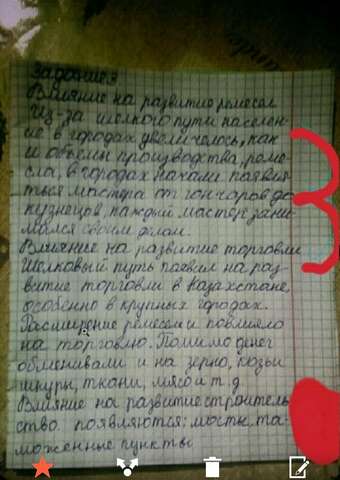 Задание
Влияние на развитие ремесел
Из-за шелкового пути населен-
ие в городах увеличелось, как
и объемы производства, реме-
сла, в городах начали появля-
ться мастера от гончаров до
кузнецов, каждый мастер зани-
мался своим делом.
Влияние на развитие торговли
Шелковый путь повлиял на раз-
витие торговли в Казахстане,
особенно в крупных городах.
Расширение ремесел и повлияло
на торговлю. Помимо денег
обменивали и на зерно, козьи
шкуры, ткани, мясо и т.д
Влияние на развитие строитель
ство. появляются: мосты, та-
моженные пункты